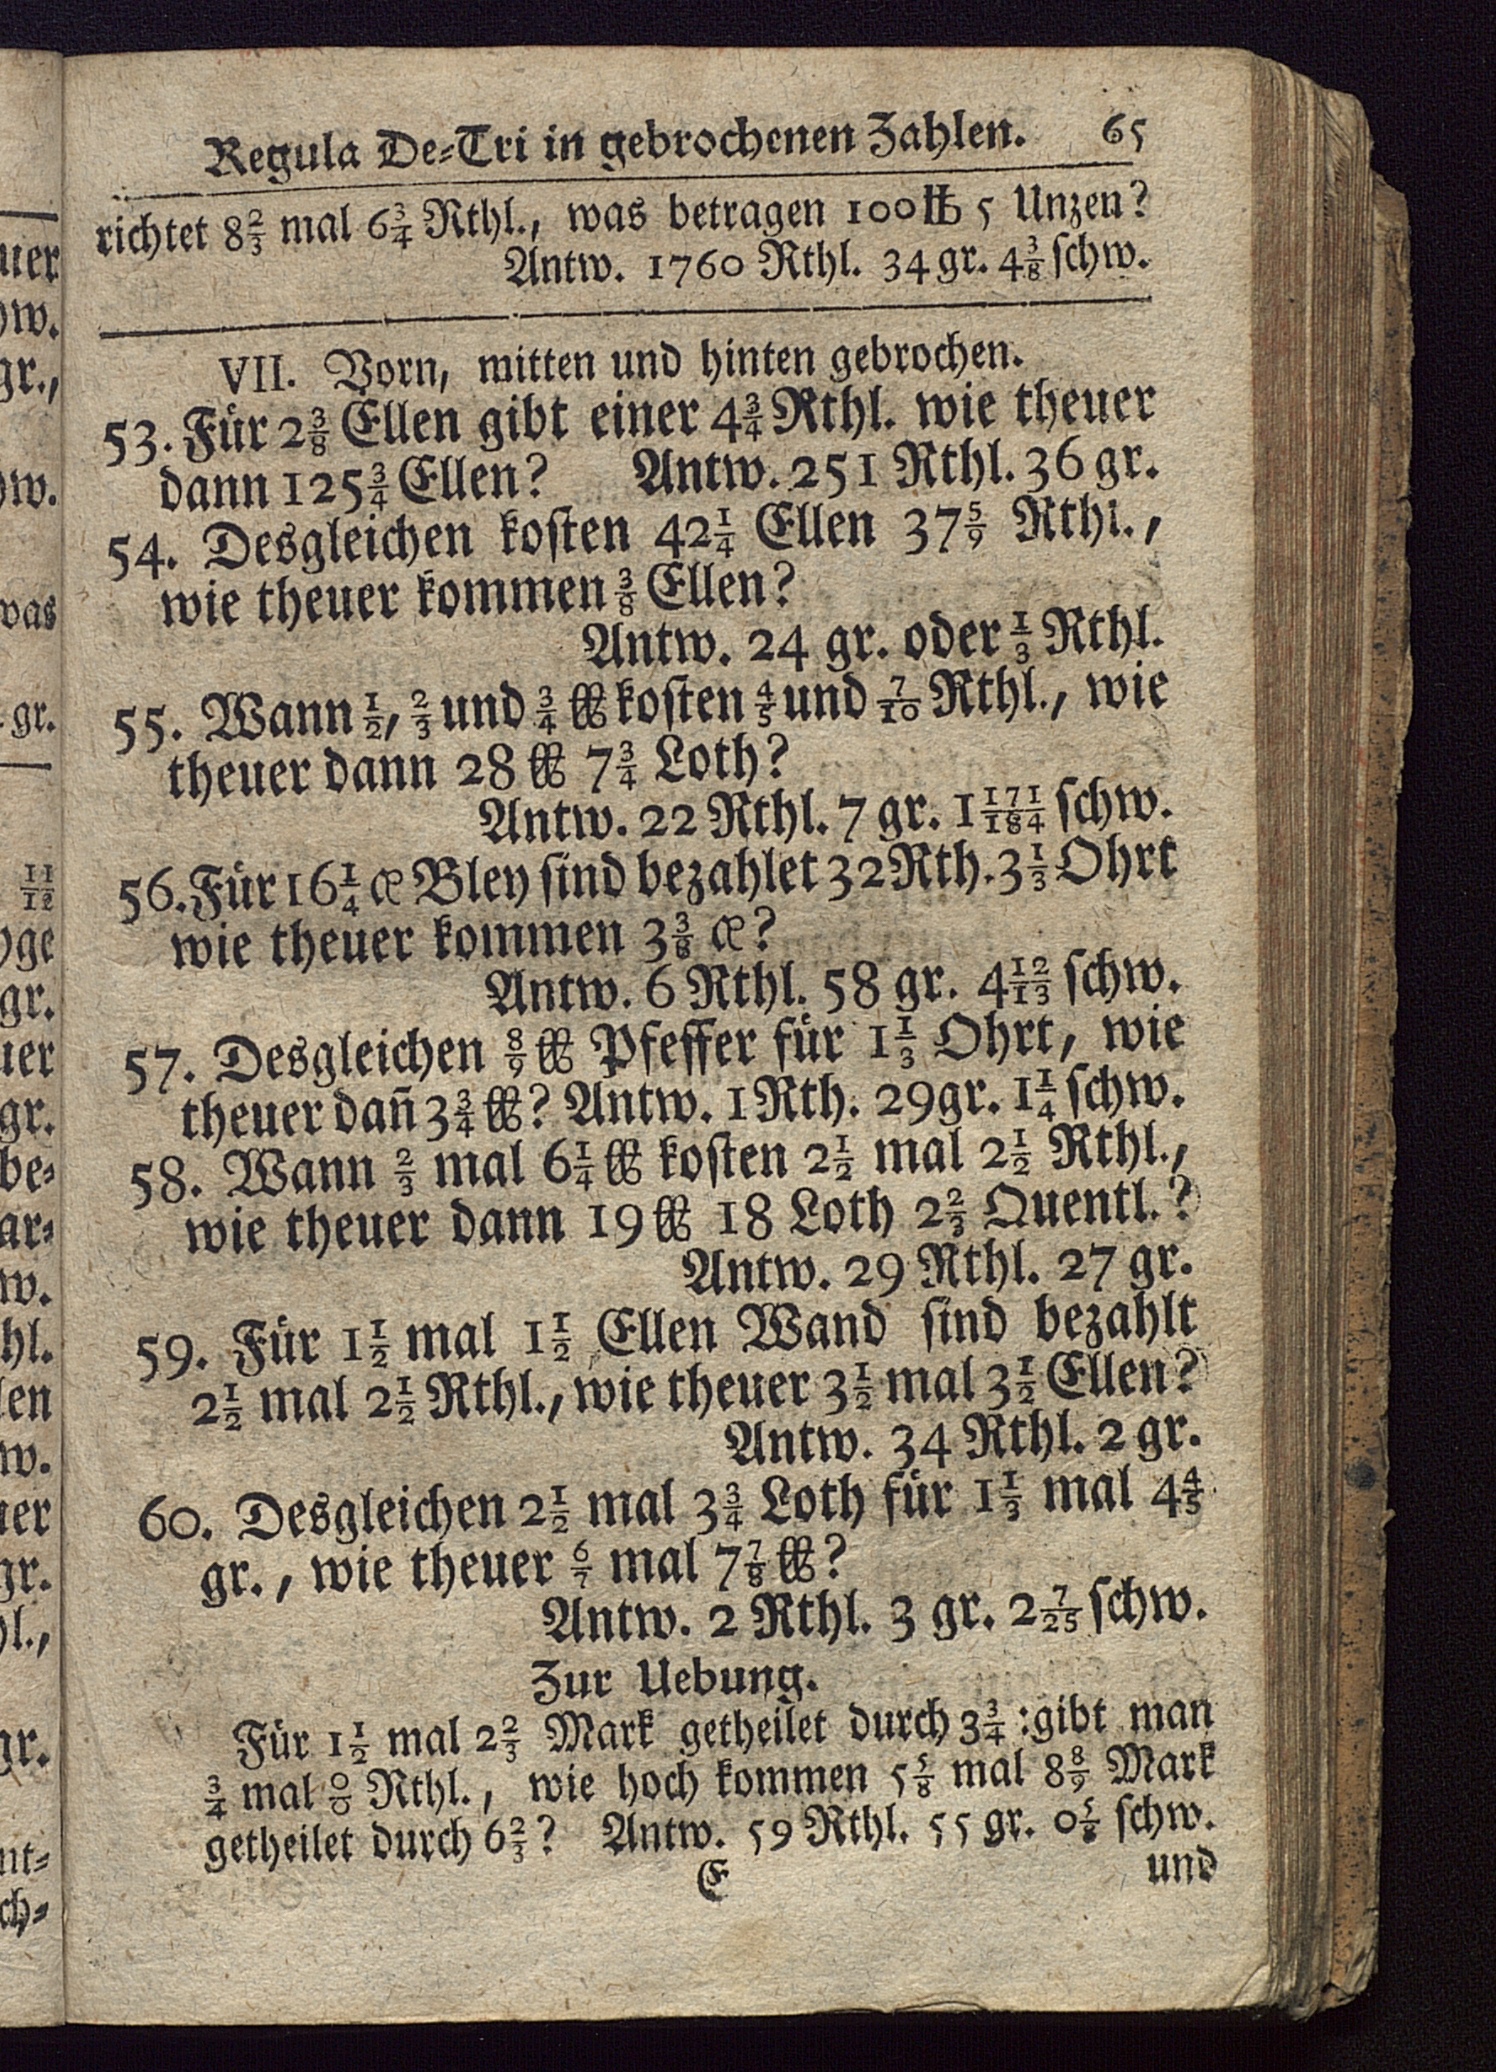 Regula De-Tri in gebrochenen Zahlen. 65
richtet 8 2/3 mal 6 3/4 Rthl., was betragen 100 ℔ 5 Unzen?
Antw. 1760 Rthl. 34 gr. 4 3/8 schw.
VII. Vorn, mitten und hinten gebrochen.
53. Für 2 3/8 Ellen gibt einer 4 3/4 Rthl. wie theuer
dann 125 3/4 Ellen? Antw. 251 Rthl. 36 gr.
54. Desgleichen kosten 42 1/4 Ellen 37 5/9 Rthl.,
wie theuer kommen 3/8 Ellen?
Antw. 24 gr. oder 1/3 Rthl.
55. Wann 1/2, 2/3 und 3/4 ℔ kosten 4/5 und 7/10 Rthl., wie
theuer dann 28 ℔ 7 3/4 Loth?
Antw. 22 Rthl. 7 gr. 1 171/184 schw.
56. Für 16 1/4 æ Bley sind bezahlet 32 Rth. 3 1/3 Ohrt
wie theuer kommen 3 3/8 æ?
Antw. 6 Rthl. 58 gr. 4 12/13 schw.
57. Desgleichen 8/9 ℔ Pfeffer für 1 1/3 Ohrt, wie
theuer dañ 3 3/4 ℔? Antw. 1 Rth. 29 gr. 1 1/4 schw.
58. Wann 2/3 mal 6 1/4 ℔ kosten 2 1/2 mal 2 1/2 Rthl.,
wie theuer dann 19 ℔ 18 Loth 2 2/3 Quentl.?
Antw. 29 Rthl. 27 gr.
59. Für 1 1/2 mal 1 1/2 Ellen Wand sind bezahlt
2 1/2 mal 2 1/2 Rthl., wie theuer 3 1/2 mal 3 1/2 Ellen?
Antw. 34 Rthl. 2 gr.
60. Desgleichen 2 1/2 mal 3 3/4 Loth für 1 1/3 mal 4 4/5
gr., wie theuer 6/7 mal 7 7/8 ℔?
Antw. 2 Rthl. 3 gr. 2 7/25 schw.
Zur Uebung.
Für 1 1/2 mal 2 2/3 Mark getheilet durch 3 3/4 : gibt man
3/4 mal 0/0 Rthl., wie hoch kommen 5 5/8 mal 8 8/9 Mark
getheilet durch 6 2/3? Antw. 59 Rthl. 55 gr. 0 5/8 schw.
E und